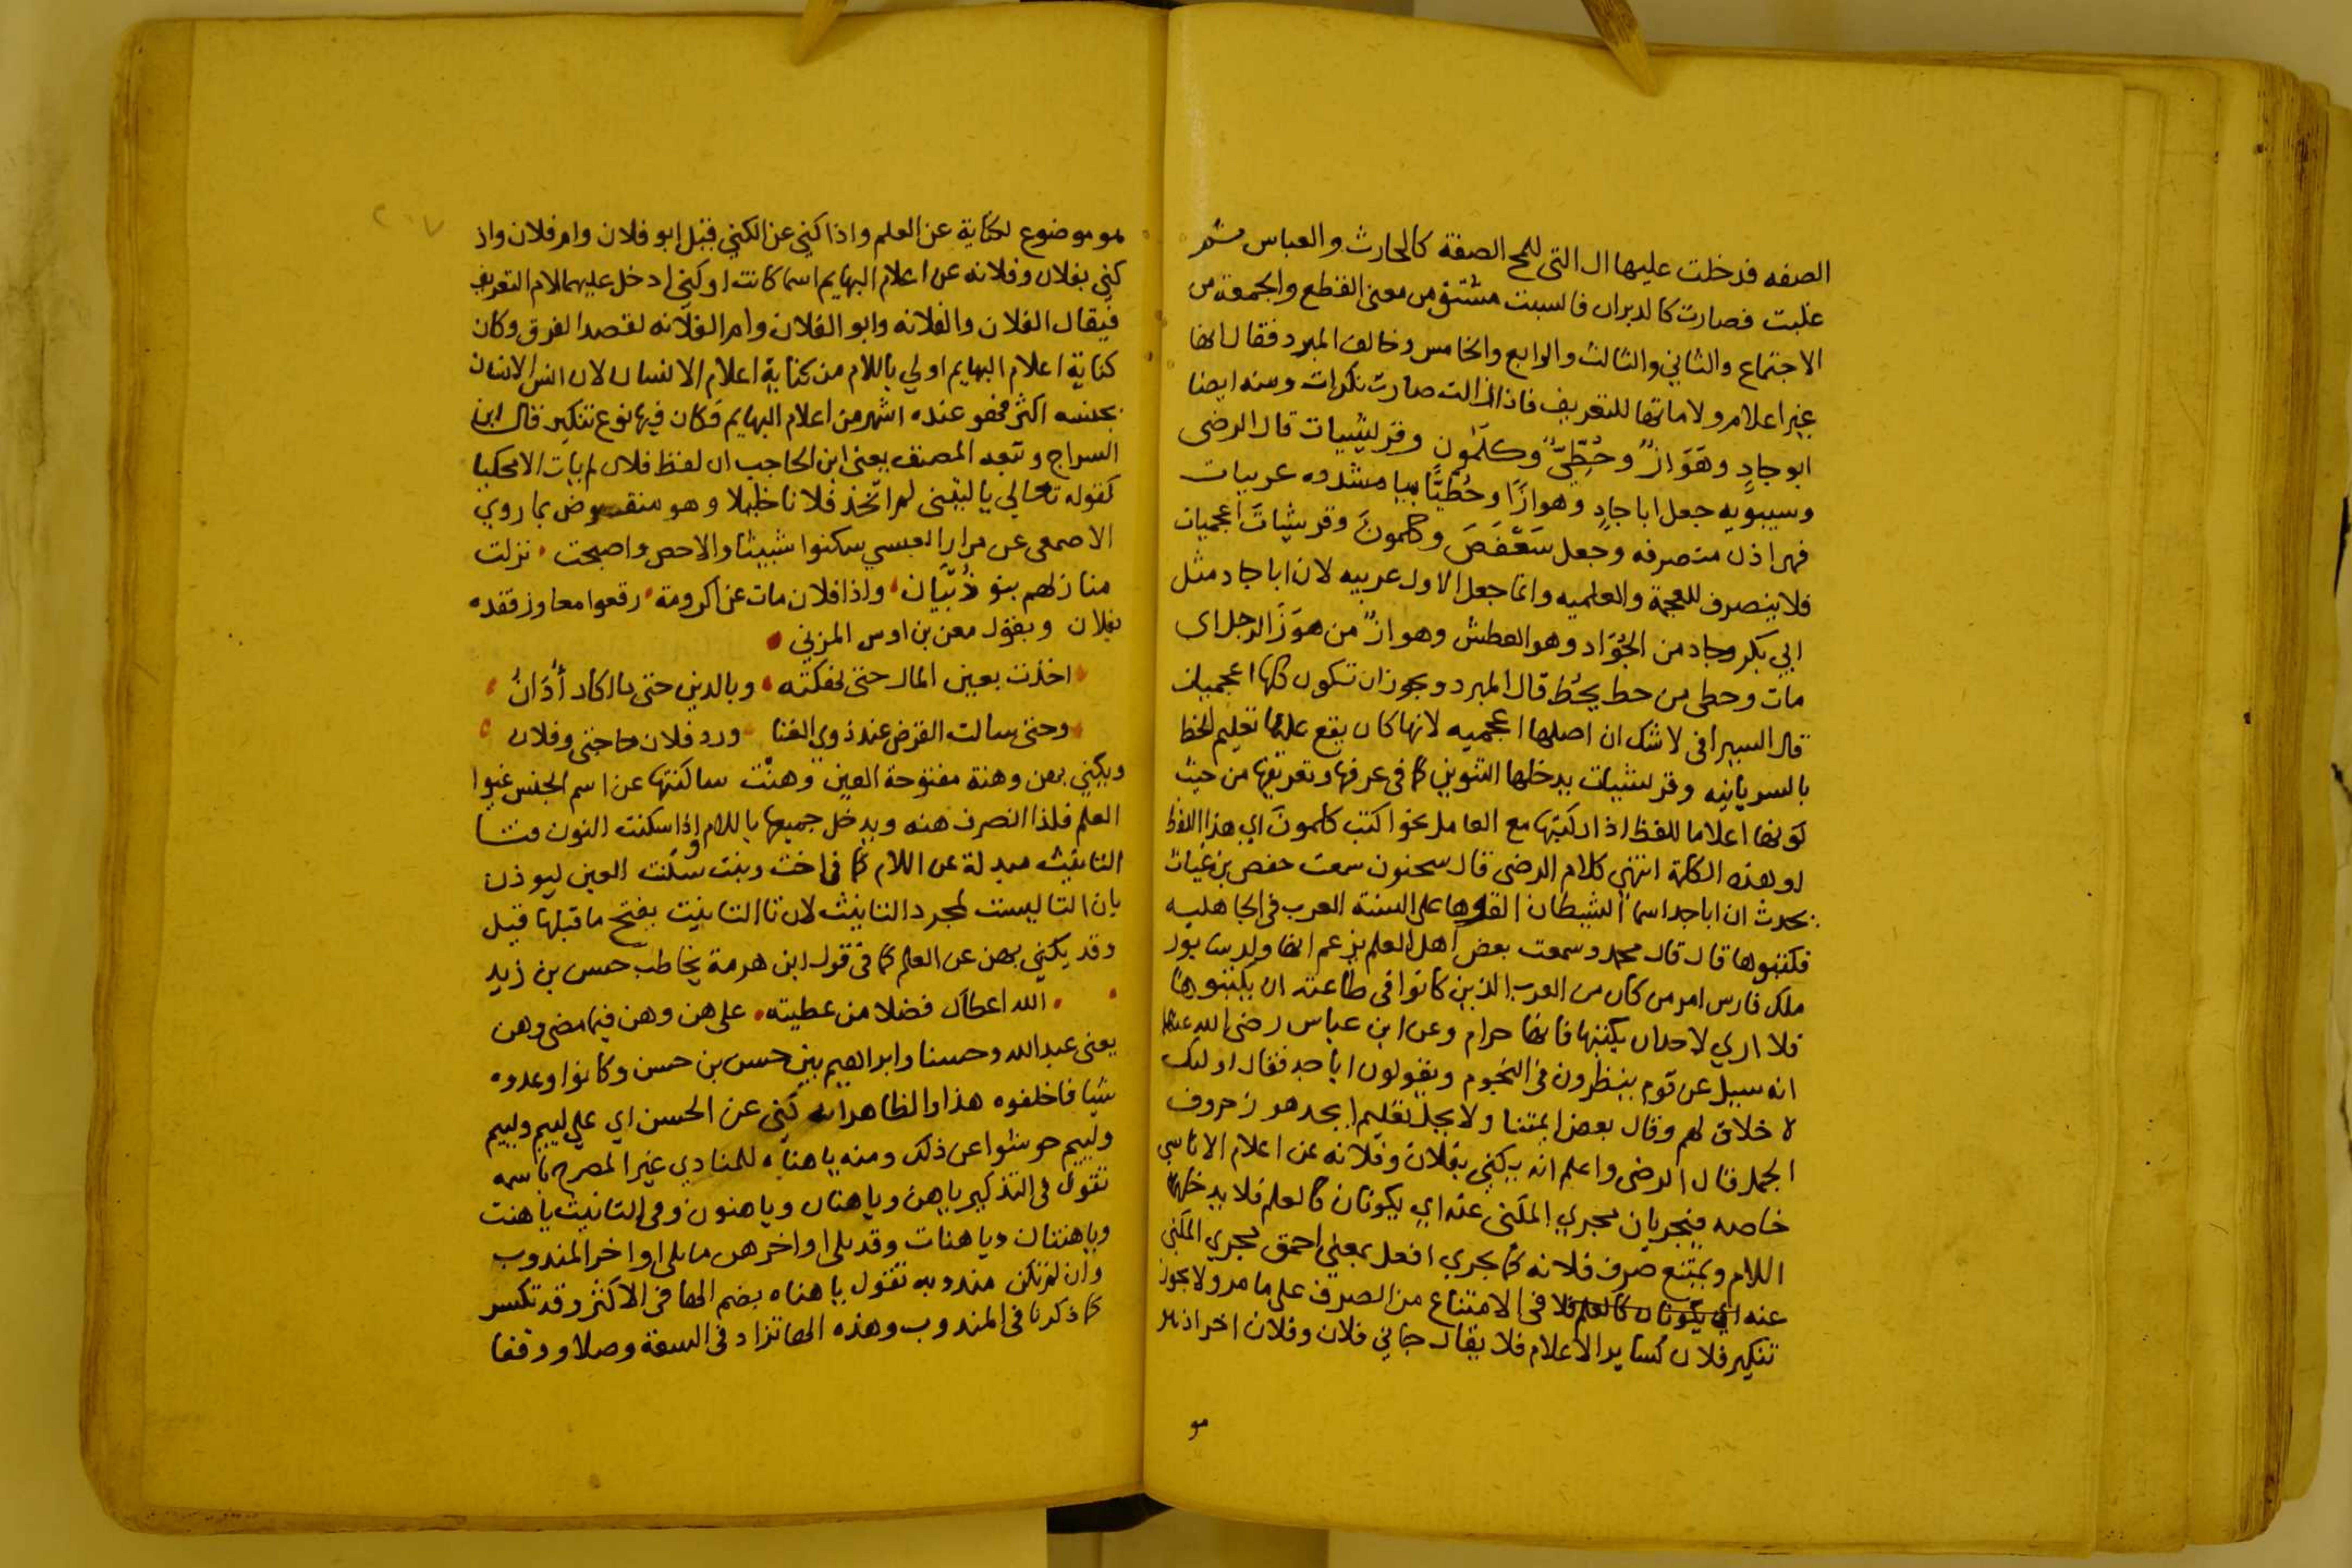 الصفه فدخلت عليها ال التى للمح الصفة كالحارث والعباس ثم
غلبت فصارت كالدبران فالسبت مشتق من معنى القطع والجمعة من
الاجتماع والثاني والثالث والرابع والخامس وخالف المبرد فقال انها
غير اعلام ولاماتها للتعريف فاذا زالت صارت نكرات ومنه ايضا
ابو جادٍ وهَوَازٌ وحُطِّيٌّ وكلمون وقريشيات قال الرضى
وسيبويه جعل ابا جادٍ وهوازًا وحُطيًّا بيا مشدده عربيات
فهى اذن منصرفه وجعل سَعْفَصَ وكلمونَ وقريشياتَ اعجميات
فلا ينصرف للعجمة والعلميه وانما جعل الاول عربيه لان ابا جاد مثل
ابي بكر وجاد من الجُوَاد وهو العطش وهوازٌ من هوَّزَ الرجل اى
مات وحطى من حط يحُط قال المبرد ويجوز ان تكون كلها اعجميات
قال السيرافى لا شك ان اصلها اعجميه لانها كان يقع عليها تعليم الخط
بالسريانيه وقريشيات يدخلها التنوين كما فى عرفها وتعريفها من حيث
كونها اعلاما للفظ اذا ركبتها مع العامل نحو اكتب كلمونَ اي هذا اللفظ
او هذه الكلمة انتهى كلام الرضى قال سحنون سمعت حفص بن غياث
يحدث ان اباجد اسما الشيطان القوها على السنة العرب فى الجاهليه
فكتبوها قال قال محمد وسمعت بعض اهل العلم يزعم انها ولد سابور
ملك فارس امر من كان من العرب الذين كانوا فى طاعته ان يكتبوها
فلا ارى لاحد ان يكتبها فانها حرام وعن ابن عباس رضى الله عنهما
انه سيل عن قوم ينظرون فى النجوم ويقولون اباجد فقال اوليك
لا خلاق لهم وقال بعض ايمتنا ولا يحل تعليم ابجد هوز حروف
الجمل قال الرضى واعلم انه يكني بفلان وفلانه عن اعلام الاناسي
خاصه فيجريان مجري المكنى عنه اي يكونان كالعلم فلا يدخلها
اللام ويمتنع صرف فلانه كما يجري افعل بمعنى احمق مجري المكنى
عنه اي يكونان كالعلم فلا فى الامتناع من الصرف على ما مر ولا يجوز
تنكير فلان كساير الاعلام فلا يقال جاني فلان وفلان اخر اذ هو
هو
هو موضوع لكناية عن العلم واذا كني عن الكنى قيل ابو فلان وام فلان واذ
كني بفلان وفلانه عن اعلام البهايم اسما كانت او كنى ادخل عليهما لام التعريف
فيقال الفلان والفلانه وابو الفلان وام الفلانه لقصد الفرق وكان
كناية اعلام البهايم اولي باللام من كناية اعلام الانسان لان انس الانسان
بجنسه اكثر فهو عنده اشهر من اعلام البهايم فكان فيها نوع تنكير قال ابن
السراج وتبعه المصنف يعنى ابن الحاجب ان لفظ فلان لم يات الا محكيا
كقوله تعالي يا ليتنى لم اتخذ فلانا خليلا وهو منقوض بما روي
الاصمعى عن مرار العبسي سكنوا شبيثا والاحص واصبحت نزلت
منازلهم بنو ذُبْيَان واذا فلان مات عن اكرومة رقعوا معاوز فقده
بفلان وبقول معن بن اوس المزني
اخذت بعين المال حتى نهكته وبالدين حتى ما اكاد أُدَانُ
وحتى سالت القرض عند ذوى الغنا ورد فلان حاجتى وفلان
ويكني بهن وهنة مفتوحة العين وهنْت ساكنتها عن اسم الجنس غير
العلم فلذا انصرف هنه ويدخل جميعها باللام واذا سكنت النون فتا
التانيث مبدلة عن اللام كما فى اخت وبنت سكنت العين ليوذن
بان التا ليست لمجرد التانيث لان تا التانيث يفتح ما قبلها قيل
وقد يكني بهن عن العلم كما فى قول ابن هرمة يخاطب حسن بن زيد
الله اعطاك فضلا من عطيته على هن وهن فيما مضى وهن
يعنى عبد الله وحسنا وابراهيم بنى حسن بن حسن وكانوا وعدوه
شيا فاخلفوه هذا والظاهر انه كنى عن الحسن اي على لييم ولييم
ولييم عن ذلك ومنه يا هناه للمنادي غير المصرح باسمه
تقول فى التذكير يا هن ويا هنان ويا هنون وفى التانيث يا هنت
ويا هنتان ويا هنات وقد يلى اواخرهن ما يلى اواخر المندوب
وان لم تكن مندوبه تقول يا هناه بضم الها فى الاكثر وقد تكسر
كما ذكرنا فى المندوب وهذه الها تزاد فى السعة وصلا ووقفا